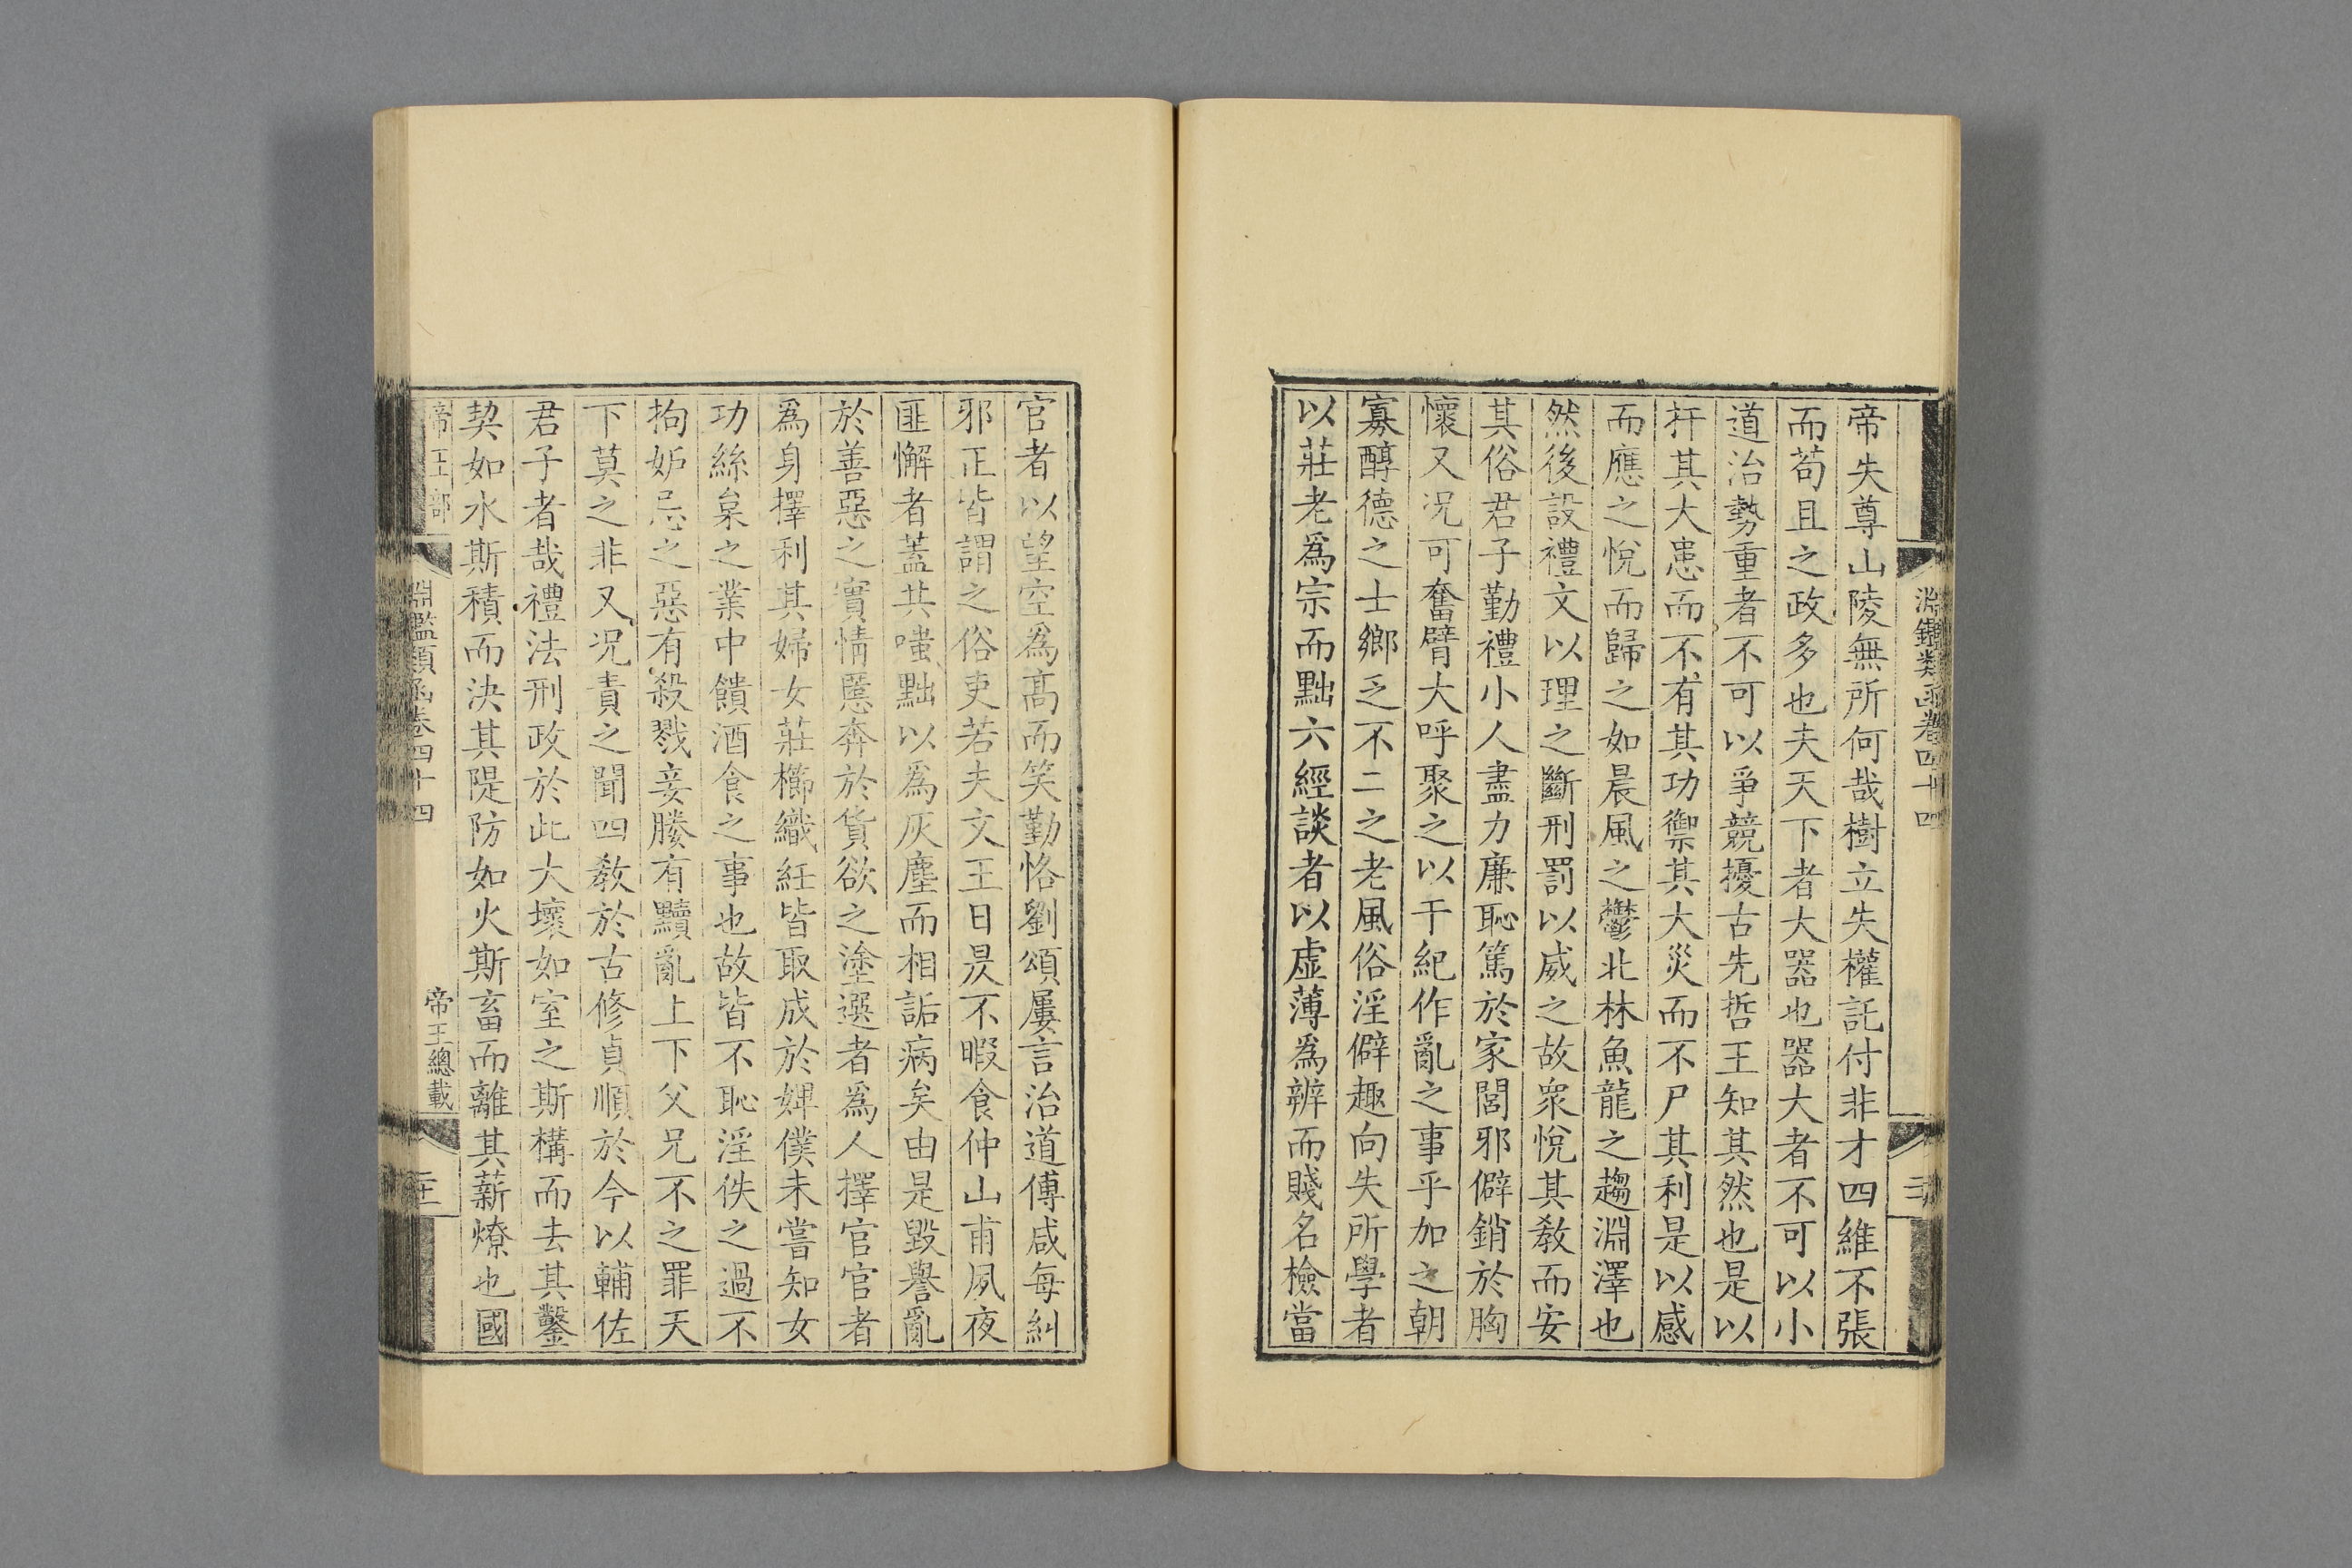 淵鑑類函卷四十四
帝失尊山陵無所何哉樹立失權託付非才四維不張
而苟且之政多也夫天下者大器也器大者不可以小
道治勢重者不可以爭競擾古先哲王知其然也是以
扞其大患而不有其功禦其大災而不尸其利是以感
而應之悅而歸之如晨風之鬱北林魚龍之趨淵澤也
然後設禮文以理之斷刑罰以威之故衆悅其教而安
其俗君子勤禮小人盡力廉恥篤於家閭邪僻銷於胸
懷又况可奮臂大呼聚之以干紀作亂之事乎加之朝
寡醇德之士鄉乏不二之老風俗淫僻趣向失所學者
以莊老爲宗而黜六經談者以虛薄爲辨而賤名檢當
官者以望空爲高而笑勤恪劉頌屢言治道傅咸每糾
邪正皆謂之俗吏若夫文王日昃不暇食仲山甫夙夜
匪懈者蓋共嗤黜以爲灰塵而相詬病矣由是毀譽亂
於善惡之實情慝奔於貨欲之塗選者爲人擇官官者
爲身擇利其婦女莊櫛織紝皆取成於婢僕未嘗知女
功絲枲之業中饋酒食之事也故皆不恥淫佚之過不
拘妒忌之惡有殺戮妾媵有黷亂上下父兄不之罪天
下莫之非又况責之聞四教於古修貞順於今以輔佐
君子者哉禮法刑政於此大壞如室之斯構而去其鑿
契如水斯積而決其隄防如火斯畜而離其薪燎也國
帝王部
淵鑑類函卷四十四
帝王總載